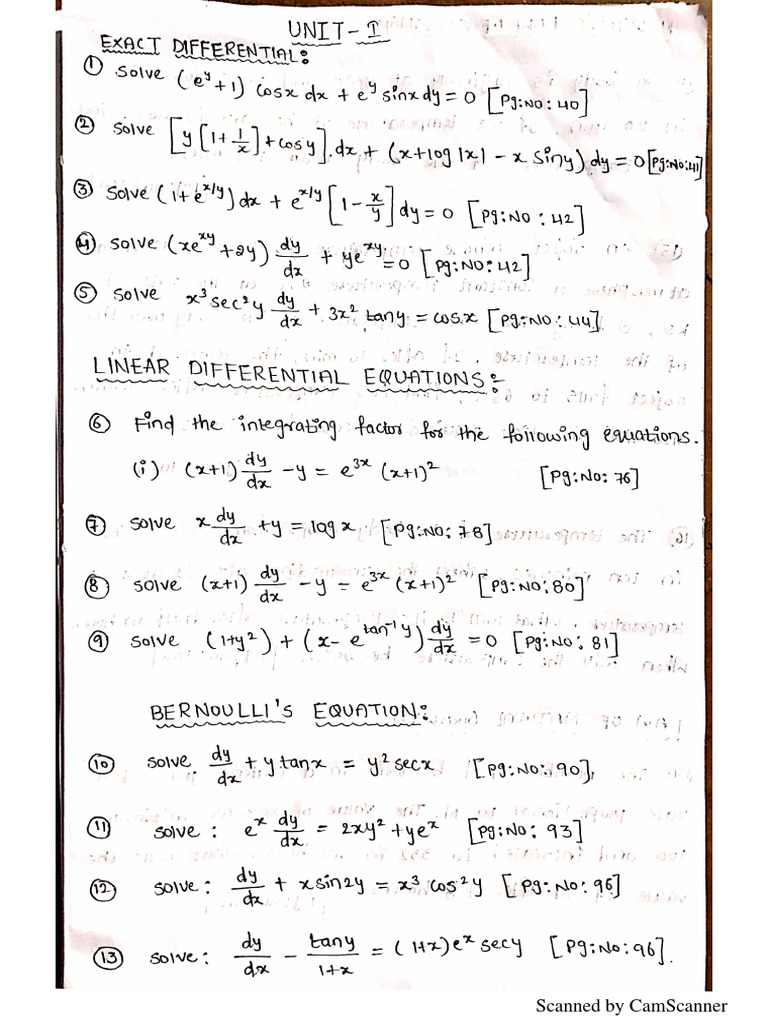 UNIT-I
EXACT DIFFERENTIAL:
① Solve (e^y+1) cosx dx + e^y sinx dy = 0 [Pg:NO: 40]
② Solve [y[1+1/x]+cosy].dx + (x+log|x| - x siny) dy = 0 [Pg:No:41]
③ Solve (1+e^x/y) dx + e^x/y [1-x/y] dy = 0 [Pg:NO: 42]
④ Solve (xe^xy +2y) dy/dx + ye^xy = 0 [Pg:NO: 42]
⑤ Solve x³ sec²y dy/dx + 3x² tany = cosx [Pg:NO: 44]
LINEAR DIFFERENTIAL EQUATIONS:-
⑥ Find the integrating factor for the following equations.
(i) (x+1) dy/dx - y = e^3x (x+1)² [Pg:NO: 76]
⑦ solve x dy/dx + y = log x [Pg:NO: 78]
⑧ solve (x+1) dy/dx - y = e^3x (x+1)² [Pg:NO: 80]
⑨ solve (1+y²) + (x- e^tan⁻¹y) dy/dx = 0 [Pg:NO: 81]
BERNOULLI's EQUATION:
⑩ Solve dy/dx + y tanx = y² secx [Pg:NO: 90]
⑪ solve : e^x dy/dx = 2xy² + ye^x [Pg:NO: 93]
⑫ solve: dy/dx + x sin2y = x³ cos²y [Pg:No:96]
⑬ solve: dy/dx - tany/1+x = (1+x)e^x secy [Pg:No:96].
Scanned by CamScanner